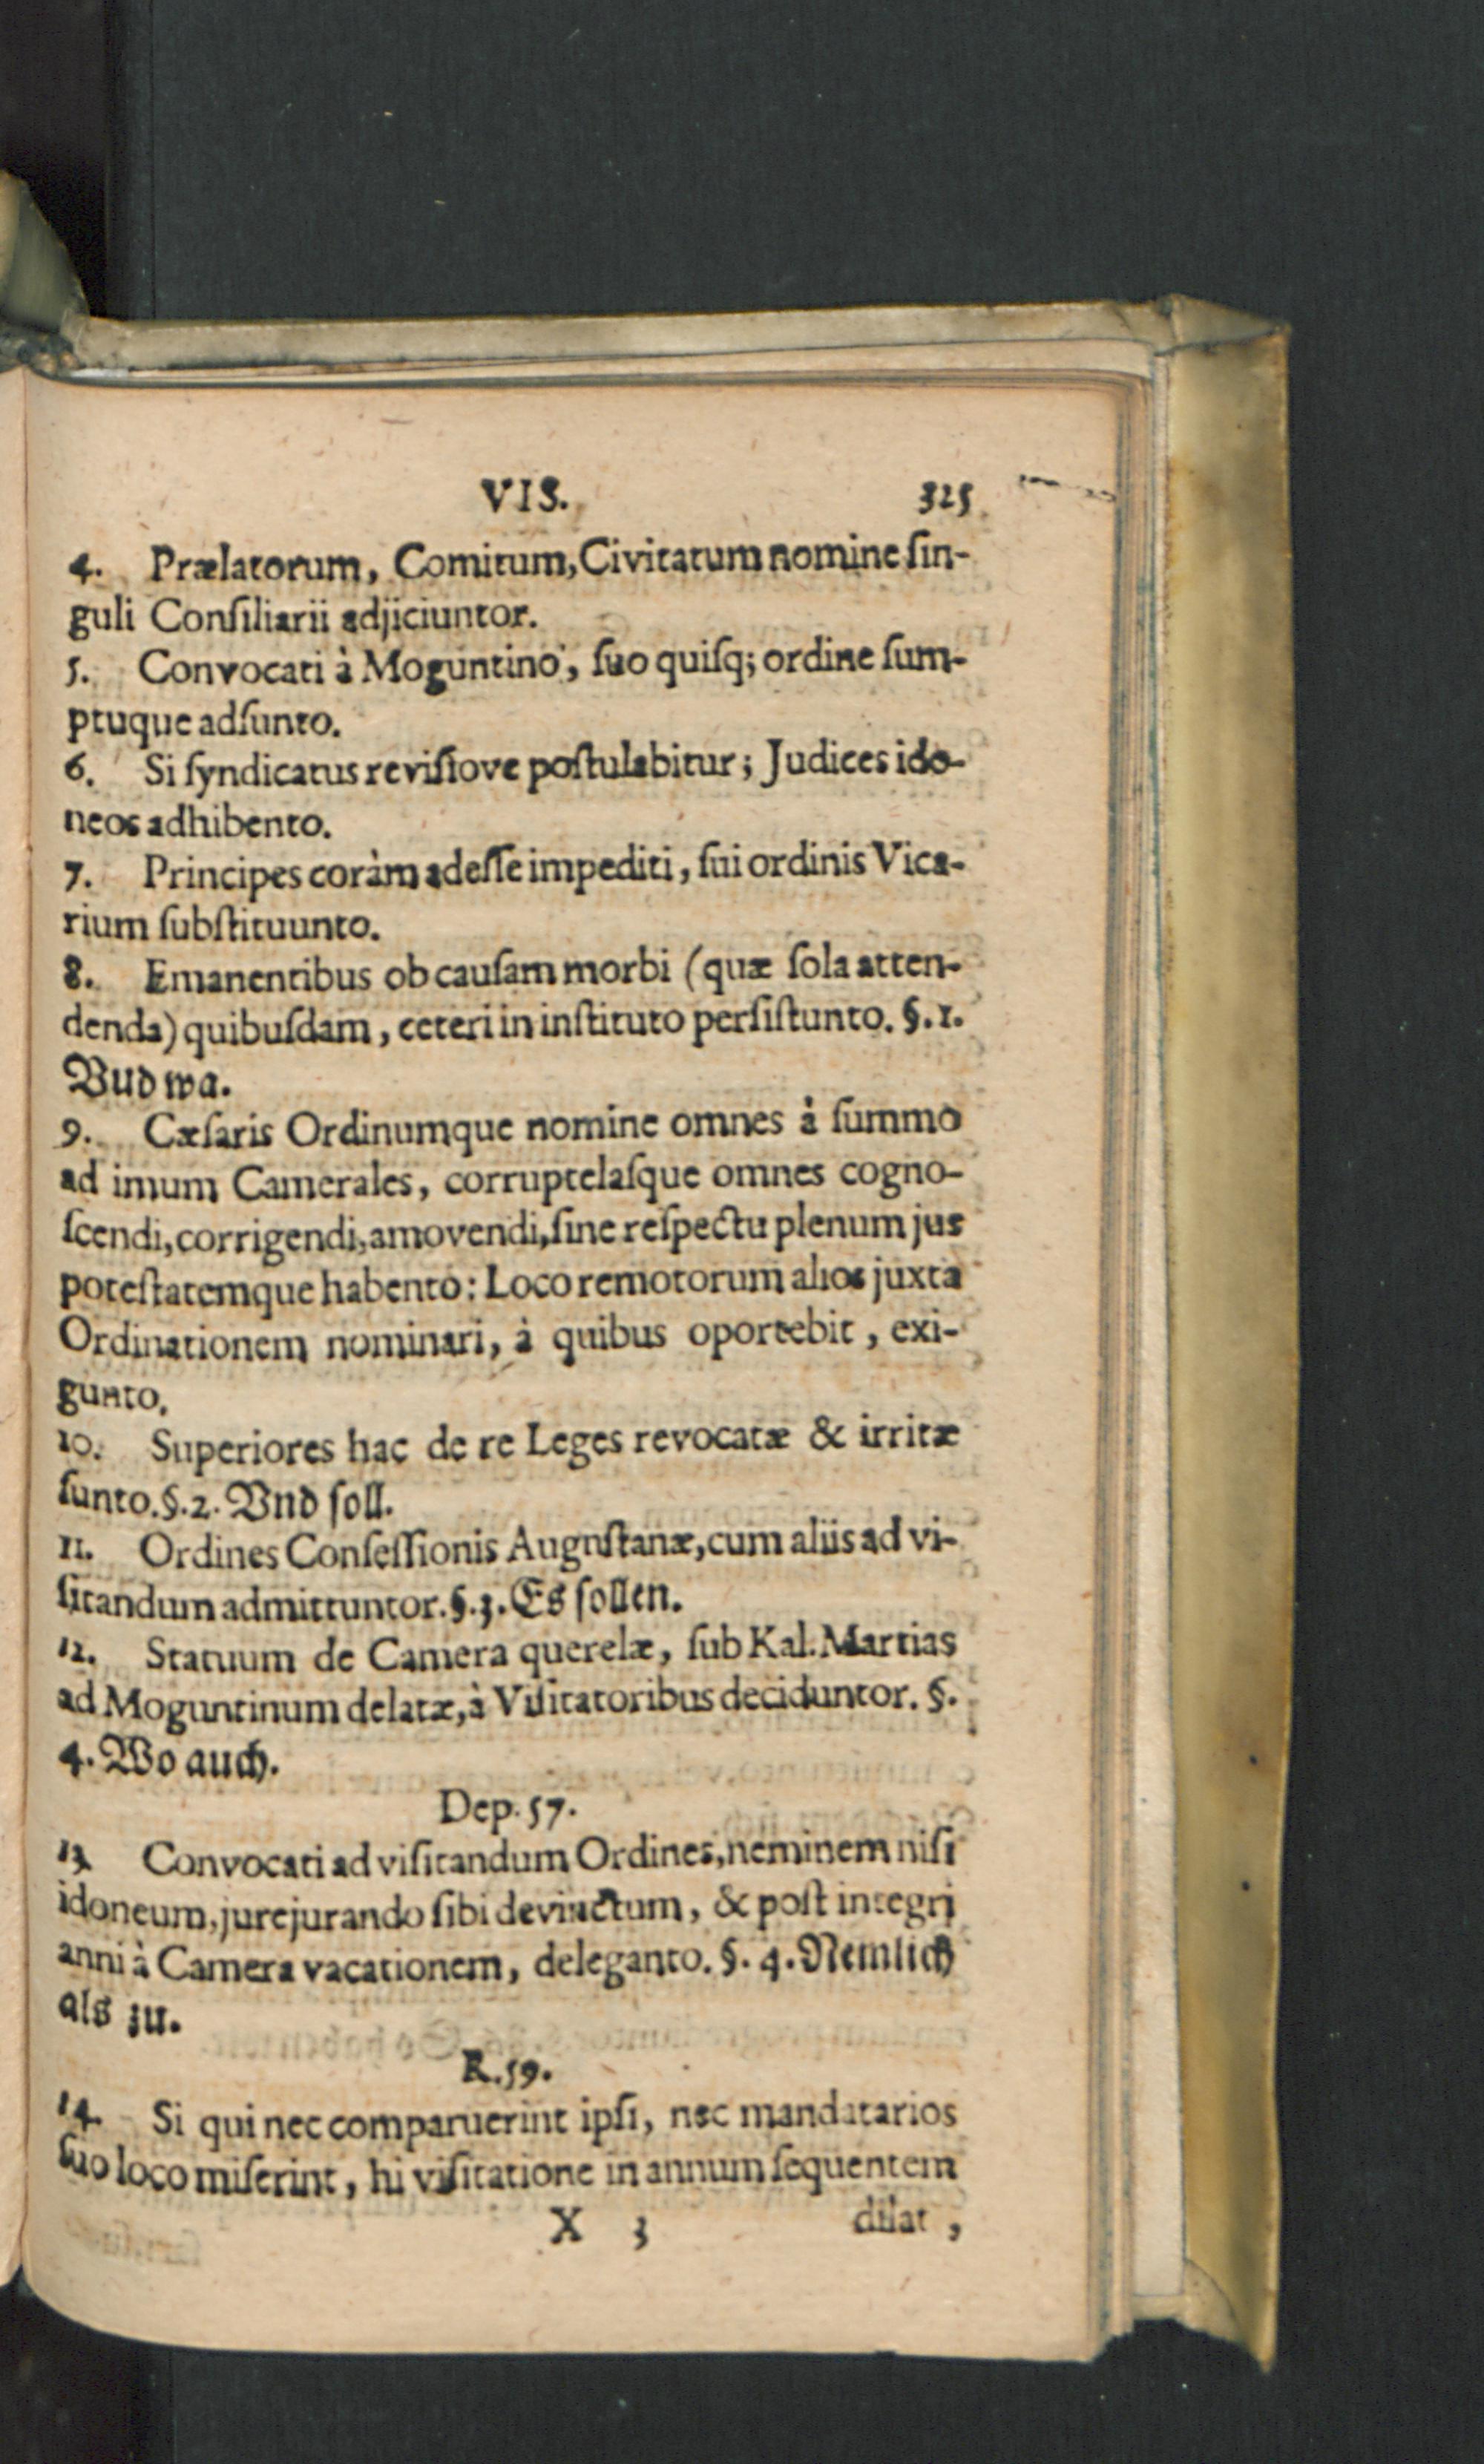 VIS. 325
4. Prælatorum, Comitum, Civitatum nomine ſin-
guli Conſiliarii adjiciuntor.
5. Convocati à Moguntino, ſuo quiſq; ordine ſum-
ptuque adſunto.
6. Si ſyndicatus reviſiove poſtulabitur; Judices ido-
neos adhibento.
7. Principes coràm adeſſe impediti, ſui ordinis Vica-
rium ſubſtituunto.
8. Emanentibus ob cauſam morbi (quæ ſola atten-
denda) quibuſdam, ceteri in inſtituto perſiſtunto. §. 1.
Vud wa.
9. Cæſaris Ordinumque nomine omnes à ſummo
ad imum Camerales, corruptelaſque omnes cogno-
ſcendi, corrigendi, amovendi, ſine reſpectu plenum jus
poteſtatemque habento: Loco remotorum alios juxta
Ordinationem nominari, à quibus oportebit, exi-
gunto.
10. Superiores hac de re Leges revocatæ & irritæ
ſunto. §. 2. Vnd ſoll.
11. Ordines Confeſſionis Auguſtanæ, cum aliis ad vi-
ſitandum admittuntor. §. 3. Es ſollen.
12. Statuum de Camera querelæ, ſub Kal. Martias
ad Moguntinum delatæ, à Viſitatoribus deciduntor. §.
4. Wo auch.
Dep. 57.
13 Convocati ad viſitandum Ordines, neminem niſi
idoneum, jurejurando ſibi devinctum, & poſt integri
anni à Camera vacationem, deleganto. §. 4. Nemlich
als zu.
R. 59.
14. Si qui nec comparuerint ipſi, nec mandatarios
ſuo loco miſerint, hi viſitatione in annum ſequentem
X 3 dilat,